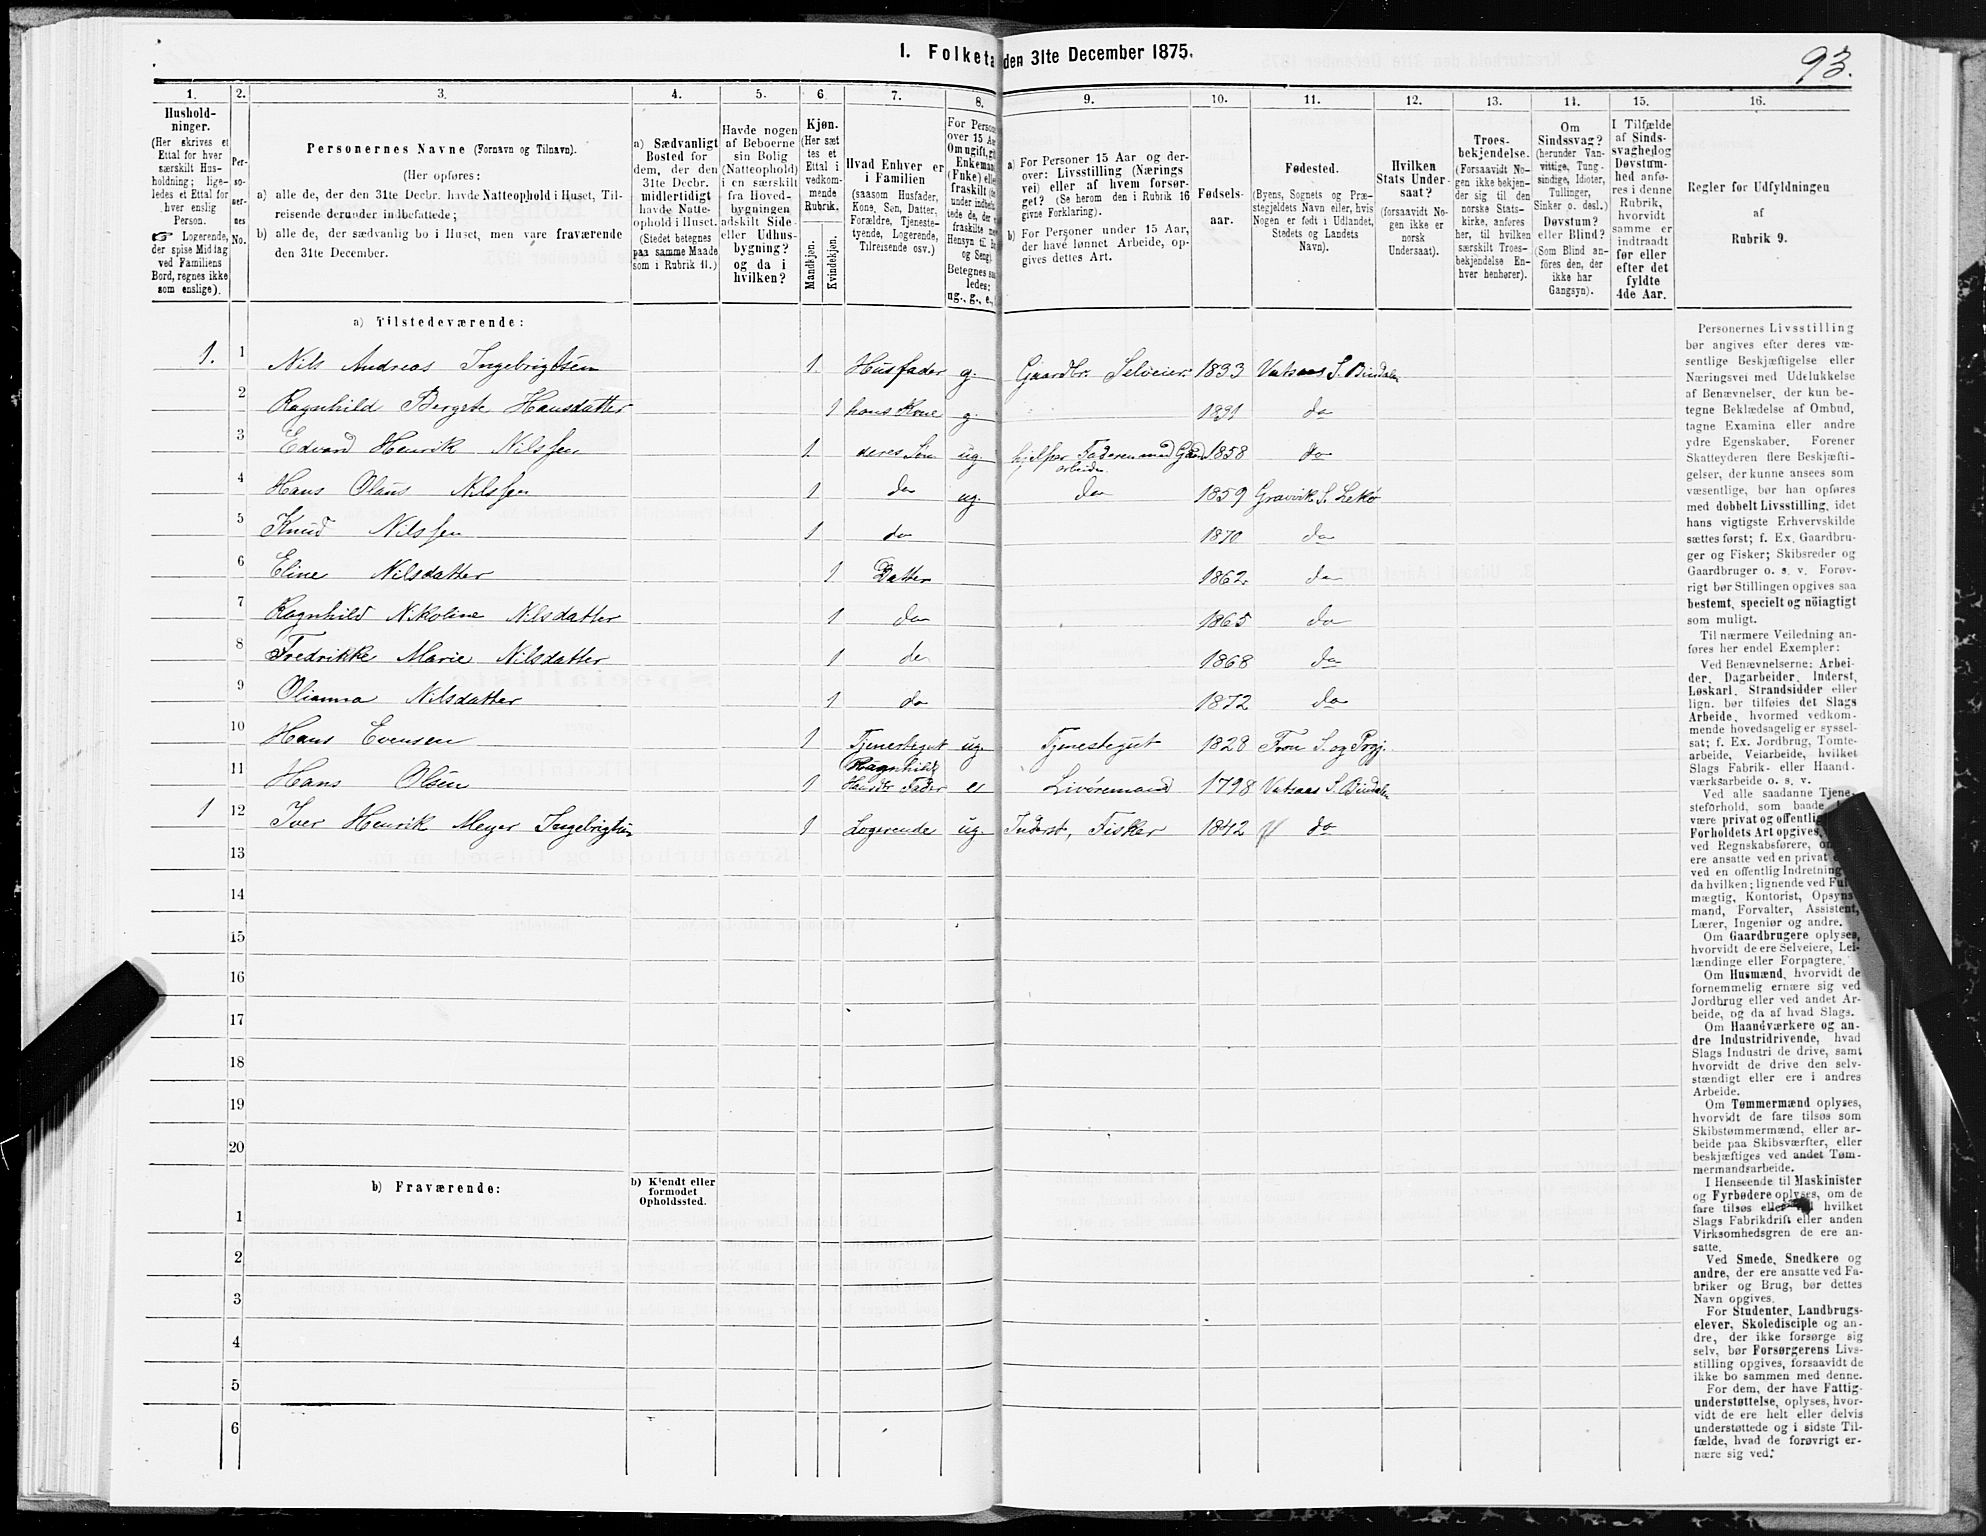 93.
I. Folketa den 31te December 1875.
1. 2. 3. 4. 5. 6. 7. 8. 9. 10. 11. 12. 13. 14. 15. 16.
Hushold-
ninger.
(Her skrives et
Ettal for hver
særskilt Hus-
holdning; lige-
ledes et Ettal for
hver enslig
Person.
☞ Logerende,
der spise Middag
ved Familiens
Bord, regnes ikke
som enslige).
Per-
so-
ner-
nes
No.
Personernes Navne (Fornavn og Tilnavn).
(Her opføres:
a) alle de, der den 31te Decbr. havde Natteophold i Huset, Til-
reisende derunder indbefattede;
b) alle de, der sædvanlig bo i Huset, men vare fraværende
den 31te December.
a) Sædvanligt
Bosted for
dem, der den
31te Decbr.
midlertidigt
havde Natte-
ophold i Huset.
(Stedet betegnes
paa samme Maade
som i Rubrik 11.)
Havde nogen
af Beboerne
sin Bolig
(Natteophold)
i en særskilt
fra Hoved-
bygningen
adskilt Side-
eller Udhus-
bygning?
og da i
hvilken?
Kjøn.
(Her sæt
tes et
Ettal i
vedkom-
mende
Rubrik.
Mandkjøn.
Kvindekjøn.
Hvad Enhver er
i Familien
(saasom Husfader,
Kone, Søn, Datter,
Forældre, Tjeneste-
tyende, Logerende,
Tilreisende osv.)
For Person
over 15 Aa
Om ugift, gi
Enkeman
(Fuke) elle
fraskilt
under indbe
tede de, der
fraskilte
Hensyn til B
og Seng).
Betegnes sa
ledes:
ug., g., e.,
a) For Personer 15 Aar og der-
over: Livsstilling (Nærings
vei) eller af hvem forsør-
get? (Se herom den i Rubrik 16
givne Forklaring).
b) For Personer under 15 Aar,
der have lønnet Arbeide, op-
gives dettes Art.
Fødsels-
aar.
Fødested.
(Byens, Sognets og Præ-
stegjeldets Navn eller, hvis
Nogen er født i Udlandet,
Stedets og Landets
Navn).
Hvilken
Stats Under-
saat?
(forsaavidt No-
gen ikke er
norsk
Undersaat).
Troes-
bekjendelse.
(Forsaavidt No-
gen ikke bekjen-
der sig til den
norske Stats-
kirke, anføres
her, til hvilken
særskilt Troes-
bekjendelse En-
hver henhører).
Om
Sindssvag?
(herunder Van-
vittige, Tung-
sindige, Idioter,
Tullinger,
Sinker o. desl.)
Døvstum?
eller Blind?
(Som Blind an-
føres den, der
ikke har
Gangsyn).
I Tilfælde
af Sinds-
svaghed og
Døvstum-
hed anfø-
res i denne
Rubrik,
hvorvidt
samme er
indtraadt
før eller
efter det
fyldte
4de Aar.
Regler for Udfyldningen
af
Rubrik 9.
a) Tilstedeværende:
1. 1 Nils Andreas Ingebrigtsen 1. Husfader g. Gaardbr. Selveier. 1833 Vatsaas S. Bindalen
2 Ragnhild Bergete Hansdatter 1 hans Kone g. 1831 do
3 Edvard Henrik Nilssen 1. deres Søn ug. hjelper Faderen med Gaard 1858 do
arbeide.
4 Hans Olaus Nilssen 1 do ug. do 1859 Gravvik S. Lekø
5 Knud Nilssen 1 do 1870 do
6 Eline Nilsdatter 1 Datter 1862 do
7 Ragnhild Nikoline Nilsdatter 1 do 1865 do
8 Fredrikke Marie Nilsdatter 1 do 1868 do
9 Olianna Nilsdatter 1 do 1872 do
10 Hans Evensen 1 Tjenestegut ug. Tjenestegut 1828 Fron S. og Prgj.
11 Hans Olsen 1 Ragnhild Hansdr Fader e Livøremand 1798 Vatsaas S. Bindalen
1 12 Iver Henrik Meyer Ingebrigtsen 1 Logerende ug. Inderst, Fisker 1842 do
13
14
15
16
17
18
19
20
b) Fraværende:
b) Kjendt eller
formodet
Opholdssted.
1
2
3
4
5
6
Personernes Livsstilling
bør angives efter deres væ-
sentlige Beskjæftigelse eller
Næringsvei med Udelukkelse
af Benævnelser, der kun be-
tegne Beklædelse af Ombud,
tagne Examina eller andre
ydre Egenskaber. Forener
Skatteyderen flere Beskjæfti-
gelser, der kunne ansees som
væsentlige, bør han opføres
med dobbelt Livsstilling, idet
hans vigtigste Erhvervskilde
sættes først; f. Ex. Gaardbru-
ger og Fisker; Skibsreder og
Gaardbruger o. s. v. Forøv-
rigt bør Stillingen opgives saa
bestemt, specielt og nöiagtigt
som muligt.
Til nærmere Veiledning an-
føres her endel Exempler:
Ved Benævnelserne: Arbei-
der, Dagarbeider, Inderst,
Løskarl, Strandsidder eller
lign. bør tilføies det Slags
Arbeide, hvormed vedkom-
mende hovedsagelig er syssel-
sat; f. Ex. Jordbrug, Tomte-
arbeide, Veiarbeide, hvilket
Slags Fabrik- eller Haand-
værksarbeide o. s. v.
Ved alle saadanne Tjene-
steforhold, som baade
være privat og offentlig
Forholdets Art opgives,
ved Regnskabsførere,
ere ansatte ved en privat
ved en offentlig Indretning
da hvilken; lignende ved Ful-
mægtig, Kontorist, Opsyns-
mand, Forvalter, Assistent,
Lærer, Ingeniør og andre.
Om Gaardbrugere oplyses,
hvorvidt de ere Selveiere, Lei-
lændinge eller Forpagtere.
Om Husmænd, hvorvidt de
fornemmelig ernære sig ved
Jordbrug eller ved andet Ar-
beide, og da af hvad Slags.
Om Haandværkere og an-
dre Industridrivende, hvad
Slags Industri de drive, samt
hvorvidt de drive den selv-
stændigt eller ere i andres
Arbeide.
Om Tømmermænd oplyses,
hvorvidt de fare tilsøs som
Skibstømmermænd, eller ar-
beide paa Skibsværfter, eller
beskjæftiges ved andet Tøm-
mermandsarbeide.
I Henseende til Maskinister
og Fyrbødere oplyses, om de
fare tilsøs eller hvilket
Slags Fabrikdrift eller anden
Virksomhedsgren de ere an-
satte.
Ved Smede, Snedkere og
andre, der ere ansatte ved Fa-
briker og Brug, bør dettes
Navn opgives.
For Studenter, Landbrugs-
elever, Skoledisciple og an-
dre, der ikke forsørge sig
selv, bør Forsørgerens Livs-
stilling opgives, forsaavidt de
ikke bo sammen med denne.
For dem, der have Fattig-
understøttelse, oplyses, hvor-
vidt de ere helt eller delvis
understøttede og i sidste Til-
fælde, hvad de forøvrigt er-
nære sig ved.